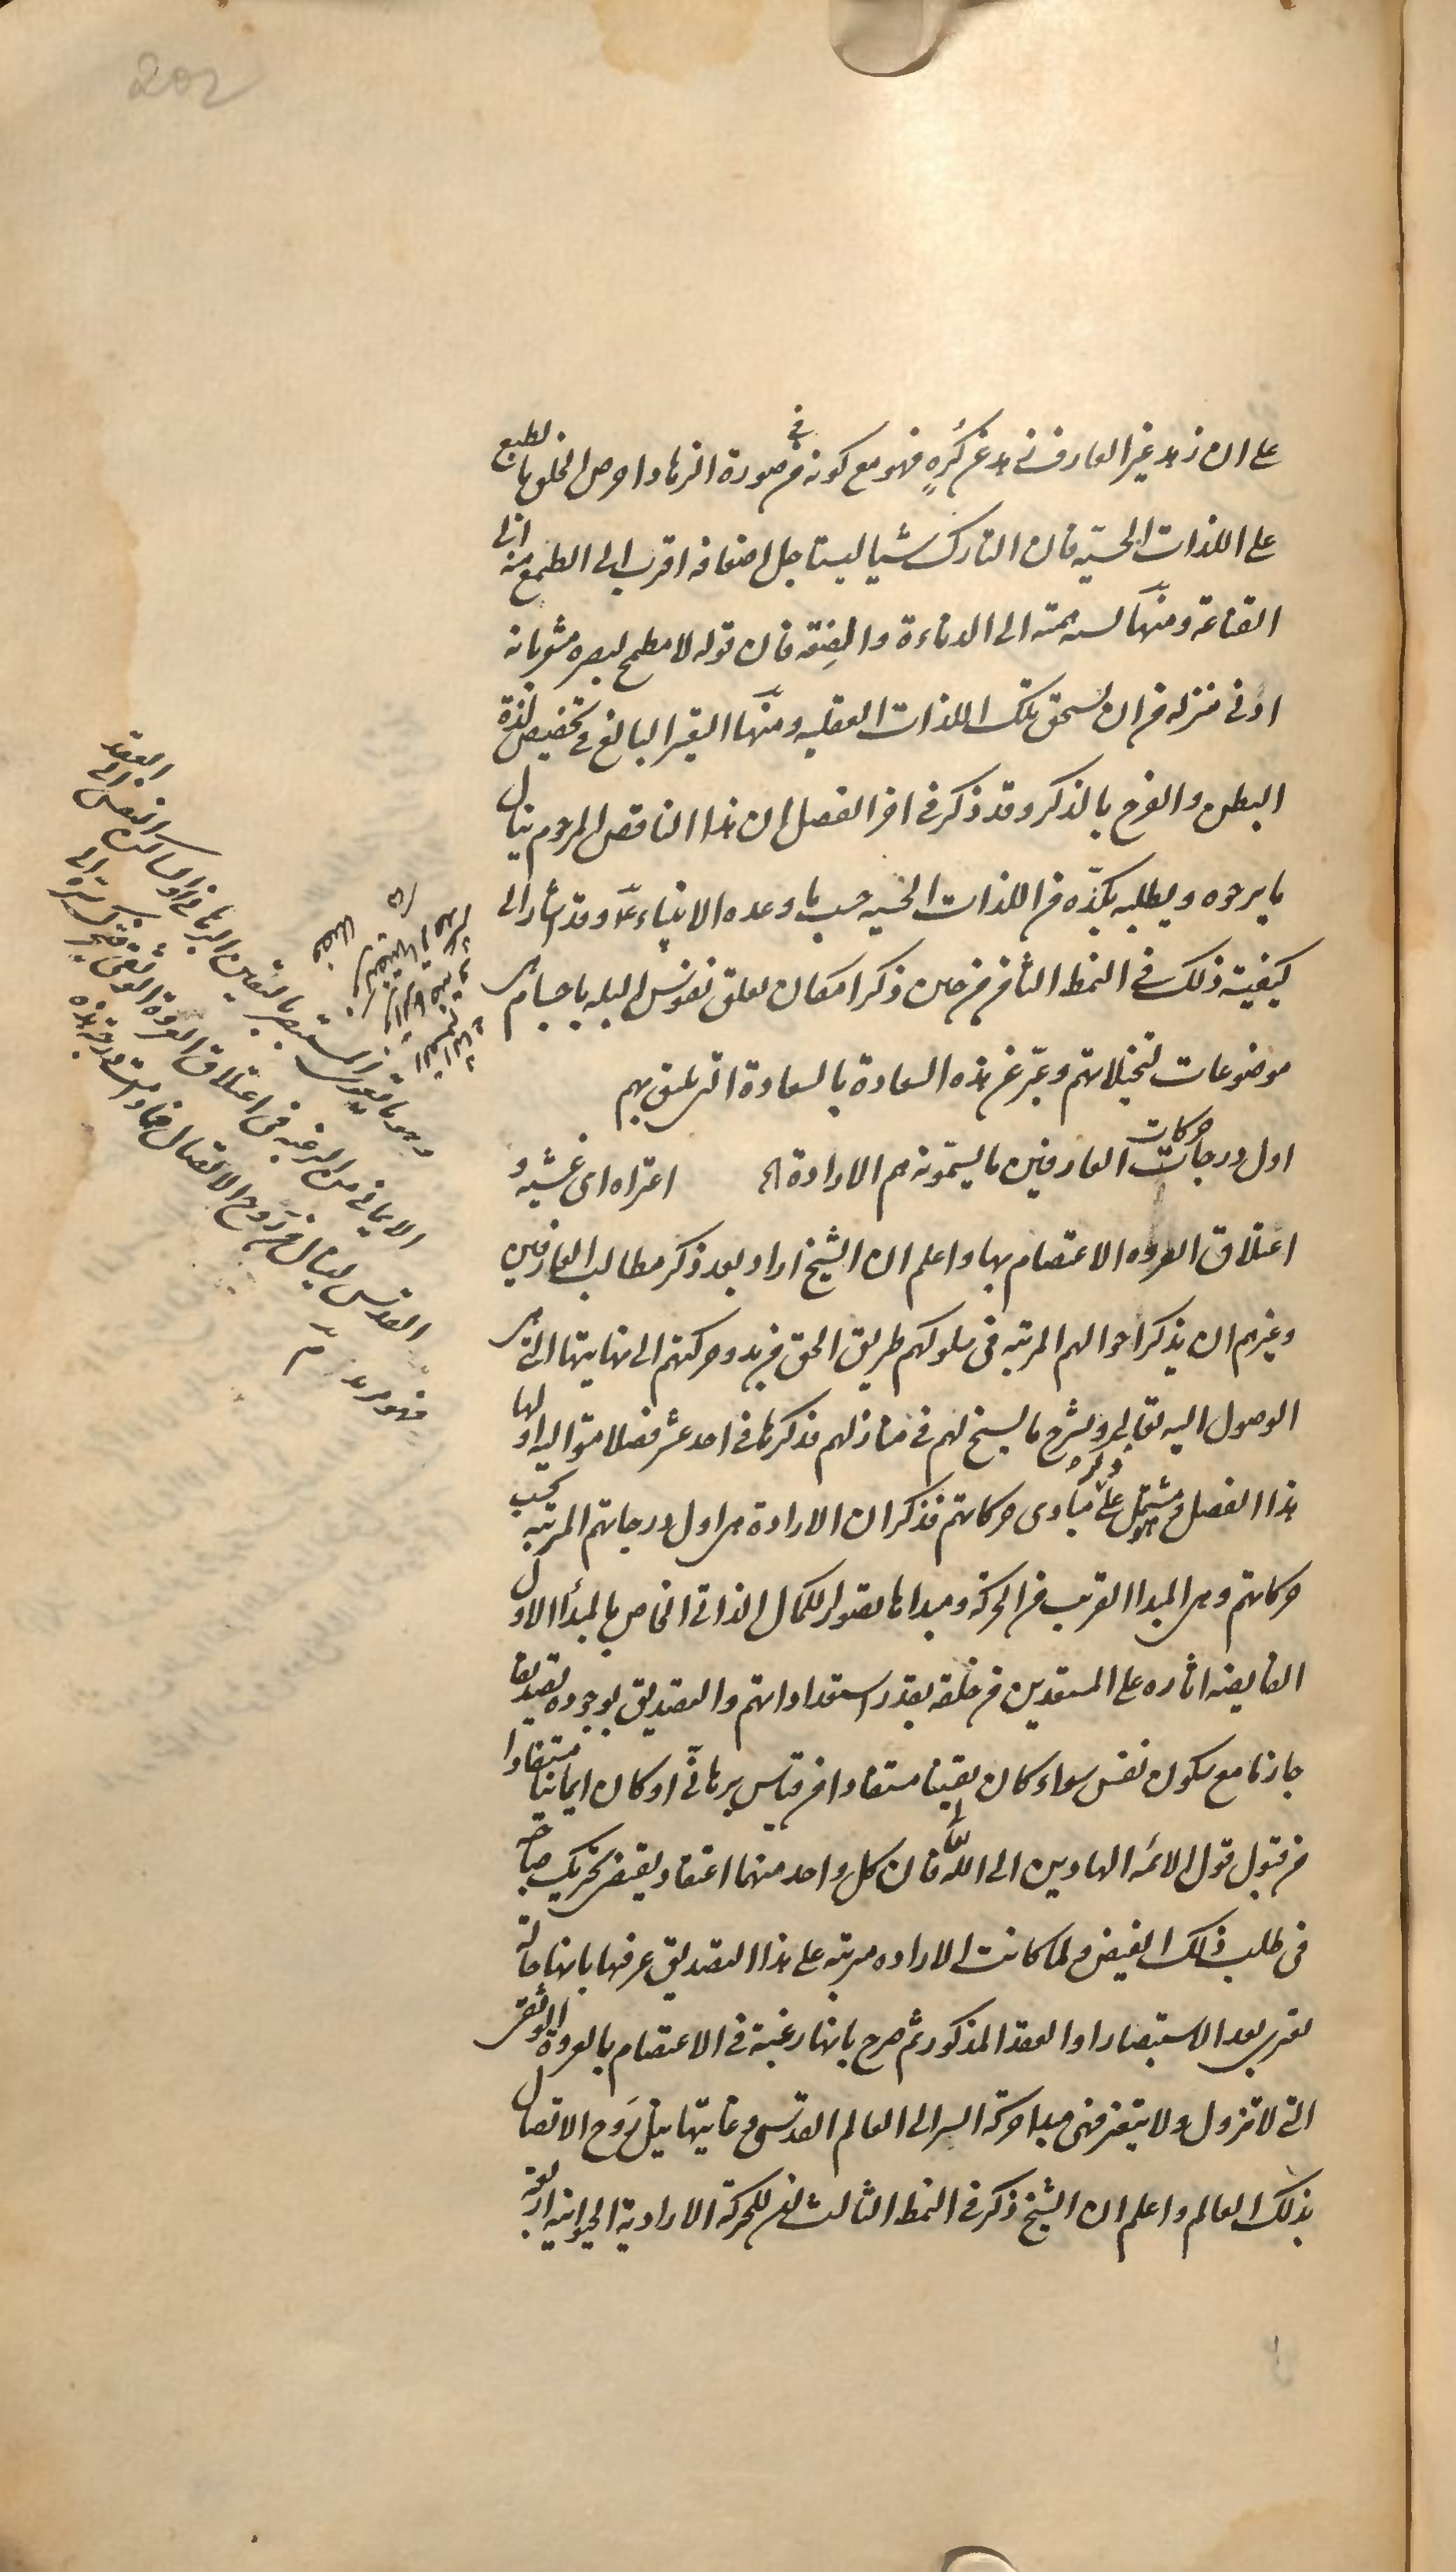 202
على ان زهد غير العارف زهد عن كُرهٍ فهو مع كونه فى صورة الزهاد احرص الخلق بالطبع
على اللذات الحسيّه فان التارك شيا ليستاجل اضعافه اقرب الى الطمع منه الى
القناعة ومنها نسبه همته الى الدناءة والضِعَة فان قوله لا مطمح لبصره مشعر بانه
ادنى منزله من ان يستحق تلك اللذات العقليه ومنها التعبير البالغ فى تخصيص لذة
البطن والفرج بالذكر وقد ذكر فى اخر الفصل ان هذا الناقص المرحوم ينال
ما يرجوه ويطلبه بكدّه من اللذات الحسيه حسب ما وعده الانبياء عم وقد اشار الى
كيفية ذلك فى النمط الثامن حين ذكر امكان تعلق نفوس البله باجسام هى
موضوعات لتخيلاتهم وعبّر عن هذه السعادة بالسعادة التى تليق بهم
اول درجات حركات العارفين ما يسمّونه هم الارادة اه اعتراه اى غشيه و
اعتلاق العروه الاعتصام بها واعلم ان الشيخ اراد بعد ذكر مطالب العارفين
وغيرهم ان يذكر احوالهم المرتبه فى سلوكهم طريق الحق من بدو حركتهم الى نهايتها التى هى
الوصول اليه تعالى ويشرح ما يسنح لهم فى منازلهم فذكرها فى احد عشر فصلا متواليه اولها
هذا الفصل وهو مشتمل على ذكر مبادى حركاتهم فذكر ان الارادة هى اول درجاتهم المرتبه بحسب
حركاتهم وهى المبدا القريب من الحركة ومبداها تصور الكمال الذاتى الخاص بالمبدأ الاول
الفايضه اثاره على المستعدين من خلقه بقدر استعداداتهم والتصديق بوجوده تصديقا
جازما مع سكون نفس سواء كان يقينيا مستفادا من قياس برهانىّ او كان ايمانيا مستفادا
من قبول قول الائمه الهادين الى الله فان كل واحد منهما اعتقاد يقتضى تحريك صاحبه
فى طلب ذلك الفيض ولما كانت الاراده مرتبه على هذا التصديق عرفها بانها حالة
تعترى بعد الاستبصار او العقد المذكور ثم صرح بانها رغبة فى الاعتصام بالعروة الوثقى
التى لا تزول ولا يتغير فهى مبدا حركة السر الى العالم القدسى وغايتها نيل رَوح الاتصال
بذلك العالم واعلم ان الشيخ ذكر فى النمط الثالث ان للحركة الارادية الحيوانيه اربعة
وهو ما يعترى المستبصر باليقين البرهانى او الساكن النفس الى العقد
الايمانى من الرغبه فى اعتلاق العروة الوثقى فيتحرك سره الى
القدس لينال من رَوح الاتصال فما دامت درجته هذه
فهو مريد